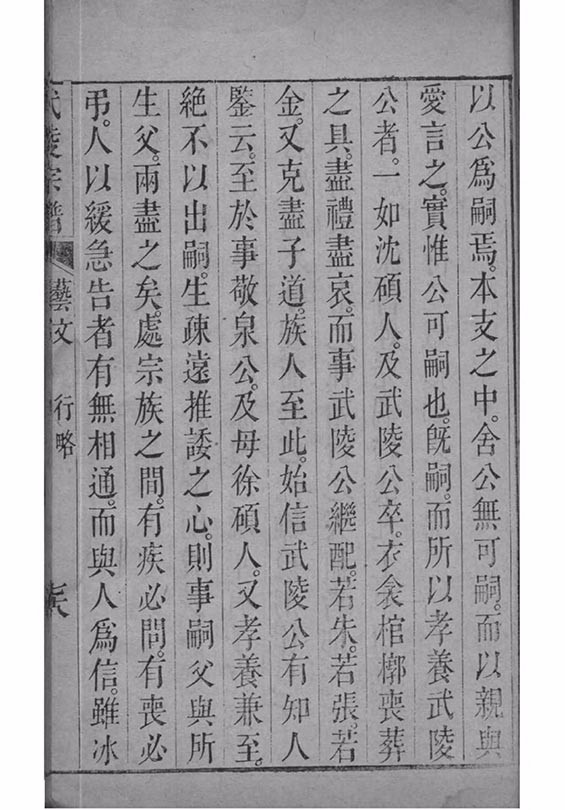 以公爲嗣焉。本支之中。舍公無可嗣。而以親與
愛言之。實惟公可嗣也。既嗣。而所以孝養武陵
公者。一如沈碩人。及武陵公卒。衣衾棺槨喪葬
之具。盡禮盡哀。而事武陵公繼配。若朱。若張。若
金。又克盡子道。族人至此。始信武陵公有知人
鑒云。至於事敬泉公。及母徐碩人。又孝養兼至。
絕不以出嗣。生疎遠推諉之心。則事嗣父與所
生父。兩盡之矣。處宗族之間。有疾必問。有喪必
弔。人以緩急告者。有無相通。而與人爲信。雖冰
氏陵宗譜 藝文 行略